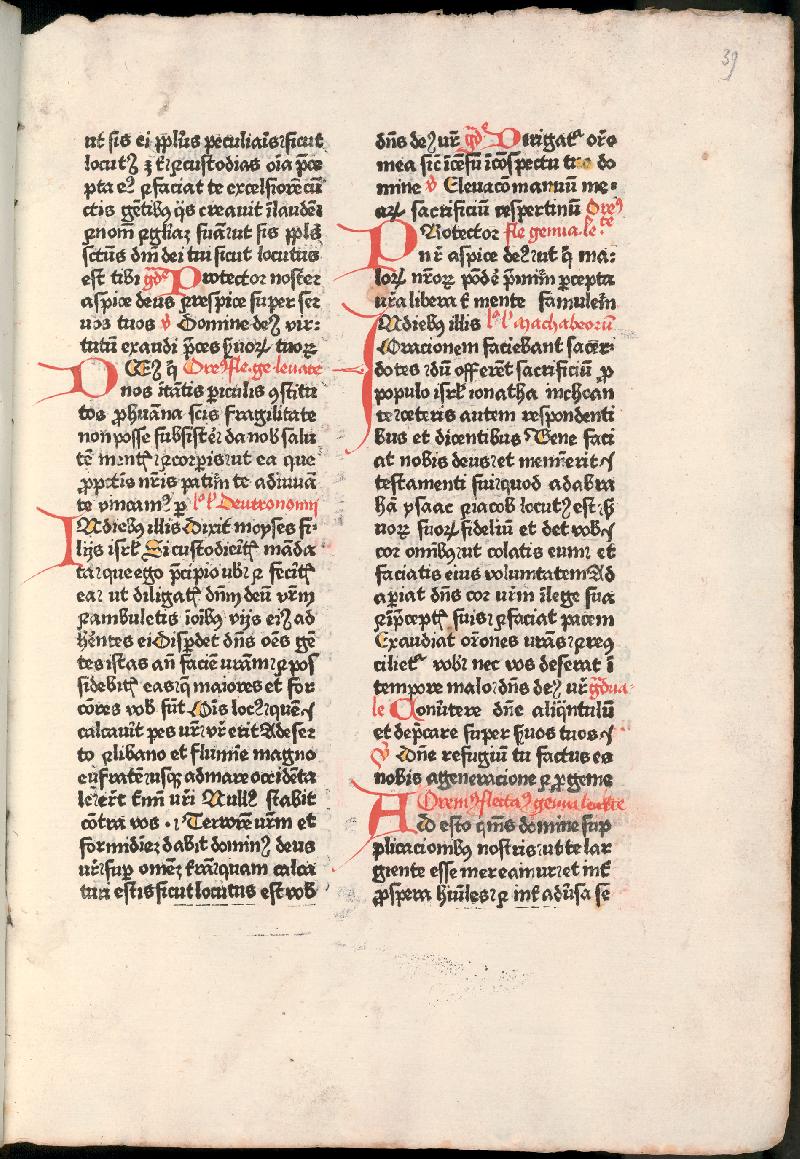 39
ut sis ei ppłus peculiaris sicut
locutꝰ ÷ t custodias oīa p̄ce
pta eꝰ ⁊ faciat te excelsiorē cū
ctis gētibꝰ q̄s creauit ī laudē
⁊ nom̄ ⁊ gliaꝫ suā ut sis ppłs
sctūs dm̄ dei tui sicut locutus
est tibi gͣdͤ Protector noster
aspice deus ⁊ respice super ser
uos tuos v̄ Domine deꝰ vir:
tutū exaudi p̄ces tuoꝝ
Deꝰ q̄ Oreꝰ fle. ge. leuate
nos ī tātis periculis ꝯstitu
tos ꝓ hūana scis fragilitate
non posse subsistere da nob̄ salu
tē mentꝭ ⁊ corporis ut ea que
ꝓ pctis nr̄is patim̄ te adiuuā
te vincamꝰ ꝑ lͦ lͥ Deutronomij
In diebꝰ illis Dixit moyses fi-
lijs isrł Si custodieritꝭ māda
ta que ego p̄cipio vob ⁊ feceritꝭ
ea ut diligatꝭ dn̄m deū vr̄m
⁊ ambuletis ī oībꝰ vijs eiꝰ ad
hērentes ei Disperdet dn̄s oēs gē
tes istas an̄ faciē vrām ⁊ pos
sidebitꝭ eas q̄ maiores et for
ciores vob sūt Oīs locꝰ quē
calcauit pes vr̄ vr̄ erit A deser
to ⁊ libano et flumine magno
eufrate usqꝫ ad mare occidēta
le erūt tm̄ī vr̄i Nullꝰ stabit
cōtra vos . Terrorē vr̄m et
formidinē dabit dominꝰ deus
vr̄ sup omnē trā quam calca
turi estis sicut locutus est vob
dn̄s deꝰ vr̄ gͣdͤ Dirigatͬ orō
mea sic īcēsū ī cōspectu tuo do
mine v̄ Eleuacō manuū me-
aꝝ sacrificiū vespertinū Oreꝰ
Protector fle genua. le.te
nr̄ aspice deꝰ ut q̄ ma:
loꝝ nr̄oꝝ pōdē p̄mimͬ percepta
mīa libera t mente famulem̄
In diebꝰ illis lͦ lͥ Machabeorū
Oracionem faciebant sacer-
dotes dū offerēt sacrificiū ꝓ
populo isrł ionatha inchoan
te ceteris autem respondenti
bus et dicentibus Bene faci
at nobis deus et meminerit
testamenti sui quod ad abra
hā ysaac ⁊ iacob locutꝰ est
uoꝝ suoꝝ fidelium et det vob
cor omibꝰ ut colatis eum et
faciatis eius voluntatem Ad
apiat dn̄s cor vr̄m ī lege sua
⁊ ī preceptꝭ suis ⁊ faciat pacem
Exaudiat or̄ones vrās ⁊ recō
cilietͬ vob nec vos deserat ī
tempore malo dn̄s deꝰ vr̄ gͣdua-
le Conuertere dn̄e aliq̄ntulū
et dep̄care super s̄uos tuos
v̄ Dn̄e refugiū tu factus es
nobis a generacione ⁊ progenie
Oremꝰ flectaꝰ genua leuate
Ad esto q̄mꝰ domine sup
plicacionibꝰ nostris ut te lar
giente esse mereamur et int̄
ꝓspera hūiles ⁊ int̄ aduersa se